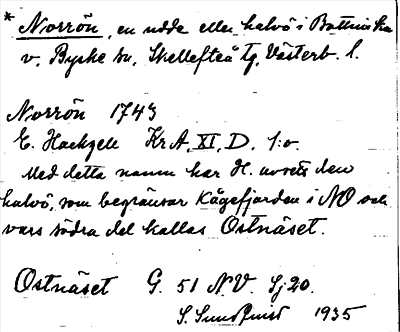 * Norrön, en udde eller halvö i Bottniska
v. Byske sn, Skellefteå tg, Västerb. l.
Norrön 1743
E. Hackzell Kr A, XI, D, 1:o.
Med detta namn har H. avsett den
halvö, som begränsar Kågefjärden i NO och
vars södra del kallas Ostnäset.
Ostnäset G. 51 N.V. Sj 20.
S. Sundqvist 1935